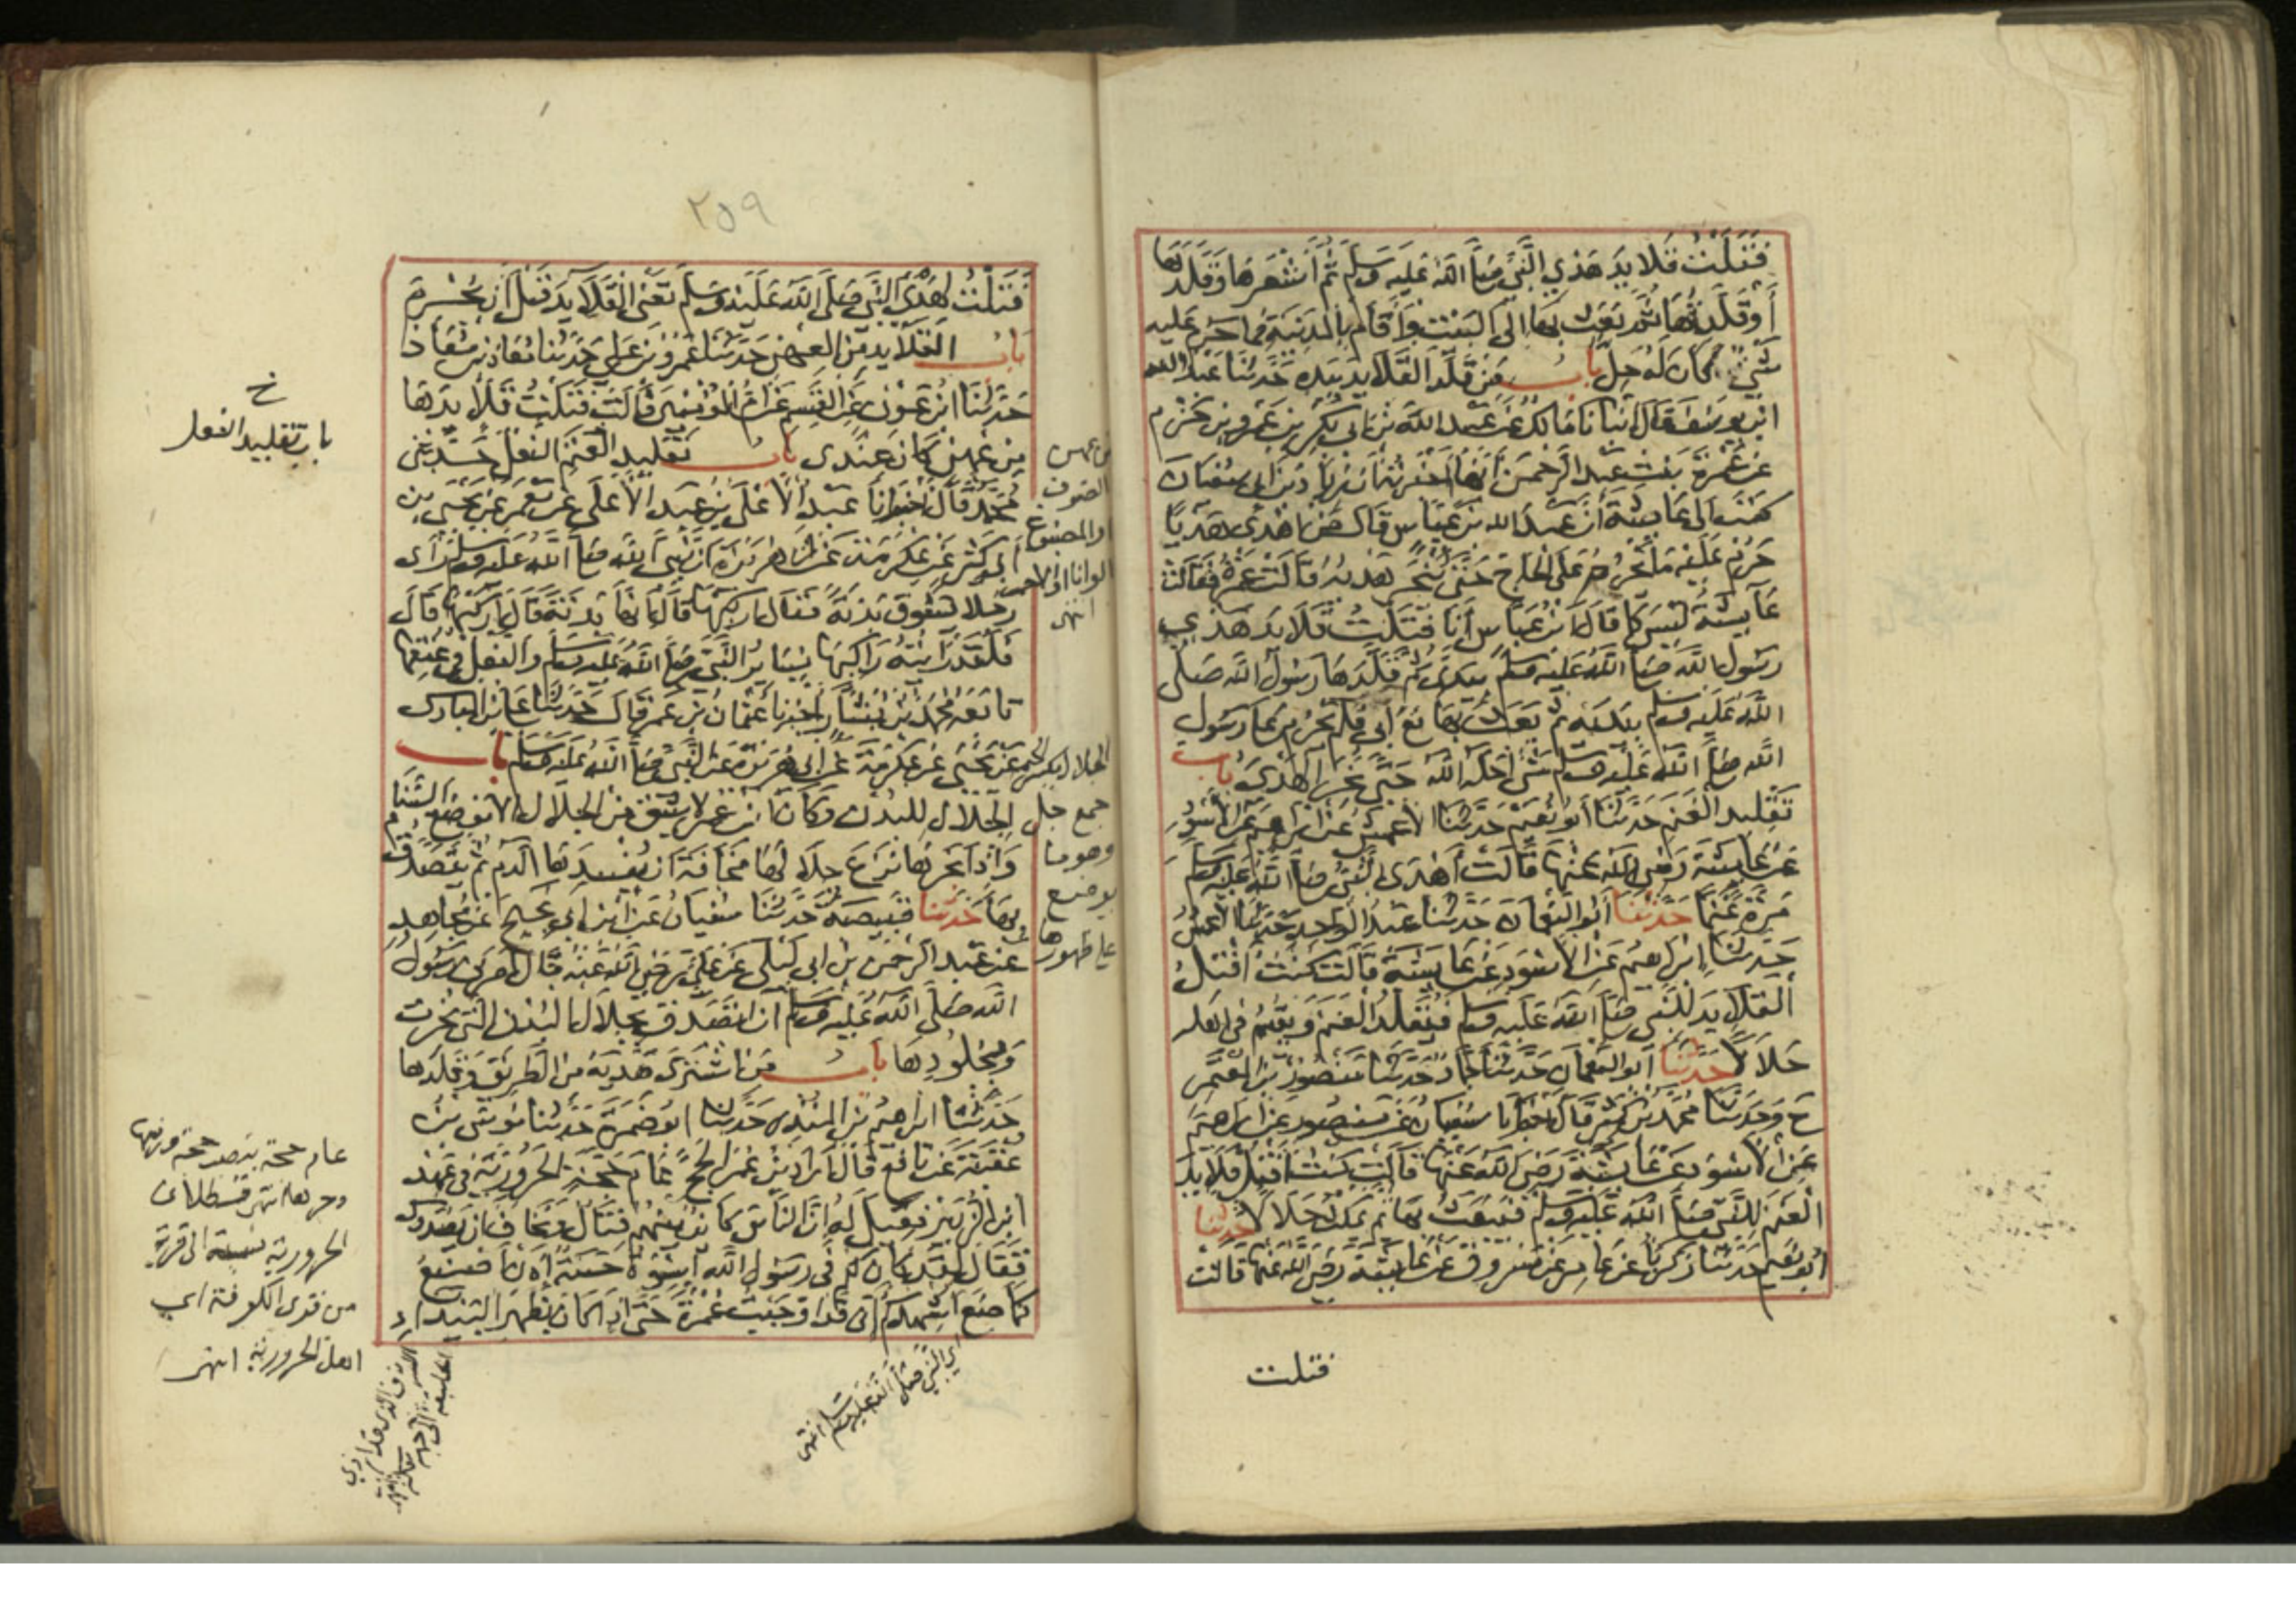 فَتَلْتُ قَلَايِدَ هَدْيِ النَّبِيِّ صَلَّى اللَّهُ عَلَيْهِ وَسَلَّمَ ثُمَّ أَشْعَرَهَا وَقَلَّدَهَا
أَوْ قَلَّدْتُهَا ثُمَّ بَعَثَ بِهَا إِلَى الْبَيْتِ وَأَقَامَ بِالْمَدِينَةِ فَمَا حَرُمَ عَلَيْهِ
شَيْءٌ كَانَ لَهُ حِلٌّ بَابُ مَنْ قَلَّدَ الْقَلَايِدَ بِيَدِهِ حَدَّثَنَا عَبْدُ اللَّهِ
ابْنُ يُوسُفَ قَالَ أَنْبَأَنَا مَالِكٌ عَنْ عَبْدِ اللَّهِ بْنِ أَبِي بَكْرِ بْنِ عَمْرِو بْنِ حَزْمٍ
عَنْ عَمْرَةَ بِنْتِ عَبْدِ الرَّحْمَنِ أَنَّهَا أَخْبَرَتْهُ أَنَّ زِيَادَ بْنَ أَبِي سُفْيَانَ
كَتَبَ إِلَى عَايِشَةَ أَنَّ عَبْدَ اللَّهِ بْنَ عَبَّاسٍ قَالَ مَنْ أَهْدَى هَدْيًا
حَرُمَ عَلَيْهِ مَا يَحْرُمُ عَلَى الْحَاجِّ حَتَّى يُنْحَرَ هَدْيُهُ قَالَتْ عَمْرَةُ فَقَالَتْ
عَايِشَةُ لَيْسَ كَمَا قَالَ ابْنُ عَبَّاسٍ أَنَا فَتَلْتُ قَلَايِدَ هَدْيِ
رَسُولِ اللَّهِ صَلَّى اللَّهُ عَلَيْهِ وَسَلَّمَ بِيَدَيَّ ثُمَّ قَلَّدَهَا رَسُولُ اللَّهِ صَلَّى
اللَّهُ عَلَيْهِ وَسَلَّمَ بِيَدَيْهِ ثُمَّ بَعَثَ بِهَا مَعَ أَبِي فَلَمْ يَحْرُمْ عَلَى رَسُولِ
اللَّهِ صَلَّى اللَّهُ عَلَيْهِ وَسَلَّمَ شَيْءٌ أَحَلَّهُ اللَّهُ حَتَّى نُحِرَ الْهَدْيُ بَابُ
تَقْلِيدِ الْغَنَمِ حَدَّثَنَا أَبُو نُعَيْمٍ حَدَّثَنَا الْأَعْمَشُ عَنْ إِبْرَاهِيمَ عَنِ الْأَسْوَدِ
عَنْ عَايِشَةَ رَضِيَ اللَّهُ عَنْهَا قَالَتْ أَهْدَى النَّبِيُّ صَلَّى اللَّهُ عَلَيْهِ وَسَلَّمَ
مَرَّةً غَنَمًا حَدَّثَنَا أَبُو النُّعْمَانِ حَدَّثَنَا عَبْدُ الْوَاحِدِ حَدَّثَنَا الْأَعْمَشُ
حَدَّثَنَا إِبْرَاهِيمُ عَنِ الْأَسْوَدِ عَنْ عَايِشَةَ قَالَتْ كُنْتُ أَفْتِلُ
الْقَلَايِدَ لِلنَّبِيِّ صَلَّى اللَّهُ عَلَيْهِ وَسَلَّمَ فَيُقَلِّدُ الْغَنَمَ وَيُقِيمُ فِي أَهْلِهِ
حَلَالًا حَدَّثَنَا أَبُو النُّعْمَانِ حَدَّثَنَا حَمَّادٌ حَدَّثَنَا مَنْصُورُ بْنُ الْمُعْتَمِرِ
ح وَحَدَّثَنَا مُحَمَّدُ بْنُ كَثِيرٍ قَالَ أَخْبَرَنَا سُفْيَانُ عَنْ مَنْصُورٍ عَنْ إِبْرَاهِيمَ
عَنِ الْأَسْوَدِ عَنْ عَايِشَةَ رَضِيَ اللَّهُ عَنْهَا قَالَتْ كُنْتُ أَفْتِلُ قَلَايِدَ
الْغَنَمِ لِلنَّبِيِّ صَلَّى اللَّهُ عَلَيْهِ وَسَلَّمَ فَيَبْعَثُ بِهَا ثُمَّ يَمْكُثُ حَلَالًا حَدَّثَنَا
أَبُو نُعَيْمٍ حَدَّثَنَا زَكَرِيَّا عَنْ عَامِرٍ عَنْ مَسْرُوقٍ عَنْ عَايِشَةَ رَضِيَ اللَّهُ عَنْهَا قَالَتْ
فتلت
٢٥٩
فَتَلْتُ لِهَدْيِ النَّبِيِّ صَلَّى اللَّهُ عَلَيْهِ وَسَلَّمَ تَعْنِي الْقَلَايِدَ قَبْلَ أَنْ يُحْرِمَ
بَابُ الْقَلَايِدِ مِنَ الْعِهْنِ حَدَّثَنَا عَمْرُو بْنُ عَلِيٍّ حَدَّثَنَا مُعَاذُ بْنُ مُعَاذٍ
حَدَّثَنَا ابْنُ عَوْنٍ عَنِ الْقَسِمِ عَنْ أُمِّ الْمُؤْمِنِينَ قَالَتْ فَتَلْتُ قَلَايِدَهَا
مِنْ عِهْنٍ كَانَ عِنْدِي بَابُ تَقْلِيدِ الْغَنَمِ النَّعْلَ حَدَّثَنِي
مُحَمَّدٌ قَالَ أَخْبَرَنَا عَبْدُ الْأَعْلَى بْنُ عَبْدِ الْأَعْلَى عَنْ مَعْمَرٍ عَنْ يَحْيَى بْنِ
أَبِي كَثِيرٍ عَنْ عِكْرِمَةَ عَنْ أَبِي هُرَيْرَةَ أَنَّ نَبِيَّ اللَّهِ صَلَّى اللَّهُ عَلَيْهِ وَسَلَّمَ رَأَى
رَجُلًا يَسُوقُ بَدَنَةً فَقَالَ ارْكَبْهَا قَالَ إِنَّهَا بَدَنَةٌ قَالَ ارْكَبْهَا قَالَ
فَلَقَدْ رَأَيْتُهُ رَاكِبَهَا يُسَايِرُ النَّبِيَّ صَلَّى اللَّهُ عَلَيْهِ وَسَلَّمَ وَالنَّعْلُ فِي عُنُقِهَا
تَابَعَهُ مُحَمَّدُ بْنُ بَشَّارٍ أَخْبَرَنَا عُثْمَانُ بْنُ عُمَرَ قَالَ حَدَّثَنَا عَلِيُّ بْنُ الْمُبَارَكِ
عَنْ يَحْيَى عَنْ عِكْرِمَةَ عَنْ أَبِي هُرَيْرَةَ عَنِ النَّبِيِّ صَلَّى اللَّهُ عَلَيْهِ وَسَلَّمَ بَابُ
الْجِلَالِ لِلْبُدْنِ وَكَانَ ابْنُ عُمَرَ لَا يَشُقُّ مِنَ الْجِلَالِ إِلَّا مَوْضِعَ السَّنَامِ
وَإِذَا نَحَرَهَا نَزَعَ جِلَالَهَا مَخَافَةَ أَنْ يُفْسِدَهَا الدَّمُ ثُمَّ يَتَصَدَّقُ
بِهَا حَدَّثَنَا قَبِيصَةُ حَدَّثَنَا سُفْيَانُ عَنِ ابْنِ أَبِي نَجِيحٍ عَنْ مُجَاهِدٍ
عَنْ عَبْدِ الرَّحْمَنِ بْنِ أَبِي لَيْلَى عَنْ عَلِيٍّ رَضِيَ اللَّهُ عَنْهُ قَالَ أَمَرَنِي رَسُولُ
اللَّهِ صَلَّى اللَّهُ عَلَيْهِ وَسَلَّمَ أَنْ أَتَصَدَّقَ بِجِلَالِ الْبُدْنِ الَّتِي نُحِرَتْ
وَبِجُلُودِهَا بَابُ مَنِ اشْتَرَى هَدْيَهُ مِنَ الطَّرِيقِ وَقَلَّدَهَا
حَدَّثَنَا إِبْرَاهِيمُ بْنُ الْمُنْذِرِ حَدَّثَنَا أَبُو ضَمْرَةَ حَدَّثَنَا مُوسَى بْنُ
عُقْبَةَ عَنْ نَافِعٍ قَالَ أَرَادَ ابْنُ عُمَرَ الْحَجَّ عَامَ حَجَّةِ الْحَرُورِيَّةِ فِي عَهْدِ
ابْنِ الزُّبَيْرِ فَقِيلَ لَهُ إِنَّ النَّاسَ كَائِنٌ بَيْنَهُمْ قِتَالٌ وَنَخَافُ أَنْ يَصُدُّوكَ
فَقَالَ لَقَدْ كَانَ لَكُمْ فِي رَسُولِ اللَّهِ أُسْوَةٌ حَسَنَةٌ إِذًا أَصْنَعُ
كَمَا صَنَعَ أُشْهِدُكُمْ أَنِّي قَدْ أَوْجَبْتُ عُمْرَةً حَتَّى إِذَا كَانَ بِظَهْرِ الْبَيْدَاءِ
خ
باب تقليد النعل
الصوف
او المصبوغ
الوانا او الاحمر
انتهى
الجلال بكسر الجيم
جمع جل
وهو ما
يوضع
على ظهورها
قسطلاني
الحرورية نسبة الى قرية
من قرى الكوفة اي
اهل الحرورية انتهى
اي النبي صلى الله عليه وسلم انتهى